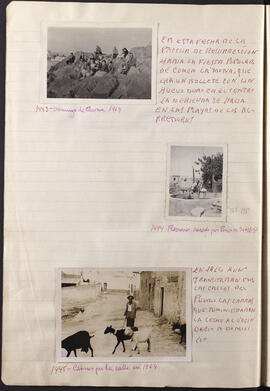 EN ESTA FECHA DE LA
PASCUA DE RESURRECCIÓN
HABIA LA FIESTA POPULAR
DE COMER LA MONA, QUE
ERA UN BOLLETE CON UN
HUEVO DURO EN EL CENTRO
LA MERIENDA SE HACIA
EN LAS PLAYAS DE LOS AL
REDEDORES
1443- Domingo de Pascua 1963
1444
1445- Cabras por la calle en 1964
EN 1964 AUN
TRANSITABAN POR
LAS CALLES DEL
PUEBLO LAS CABRAS
QUE SUMINISTRABAN
LA LECHE AL VECIN
DARIO A DOMICI
LIO